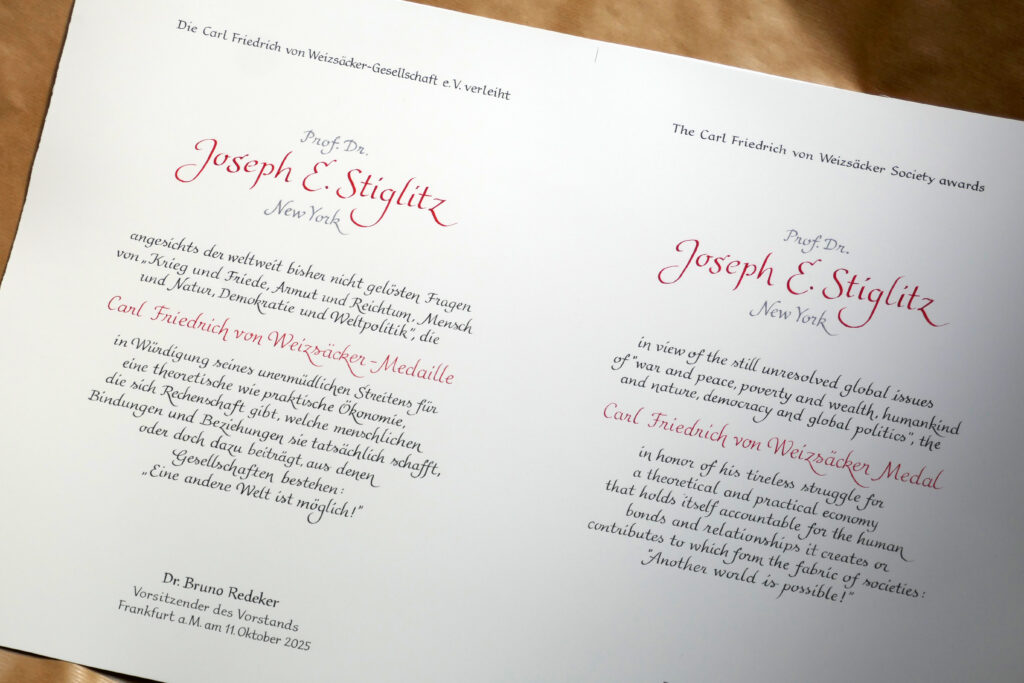 Die Carl Friedrich von Weizsäcker-Gesellschaft e.V. verleiht
Prof. Dr.
Joseph E. Stiglitz
New York
angesichts der weltweit bisher nicht gelösten Fragen
von „Krieg und Friede, Armut und Reichtum, Mensch
und Natur, Demokratie und Weltpolitik“, die
Carl Friedrich von Weizsäcker-Medaille
in Würdigung seines unermüdlichen Streitens für
eine theoretische wie praktische Ökonomie,
die sich Rechenschaft gibt, welche menschlichen
Bindungen und Beziehungen sie tatsächlich schafft,
oder doch dazu beiträgt, aus denen
Gesellschaften bestehen:
„Eine andere Welt ist möglich!“
Dr. Bruno Redeker
Vorsitzender des Vorstands
Frankfurt a.M. am 11. Oktober 2025
The Carl Friedrich von Weizsäcker Society awards
Prof. Dr.
Joseph E. Stiglitz
New York
in view of the still unresolved global issues
of "war and peace, poverty and wealth, humankind
and nature, democracy and global politics", the
Carl Friedrich von Weizsäcker Medal
in honor of his tireless struggle for
a theoretical and practical economy
that holds itself accountable for the human
bonds and relationships it creates or
contributes to which form the fabric of societies:
"Another world is possible!"